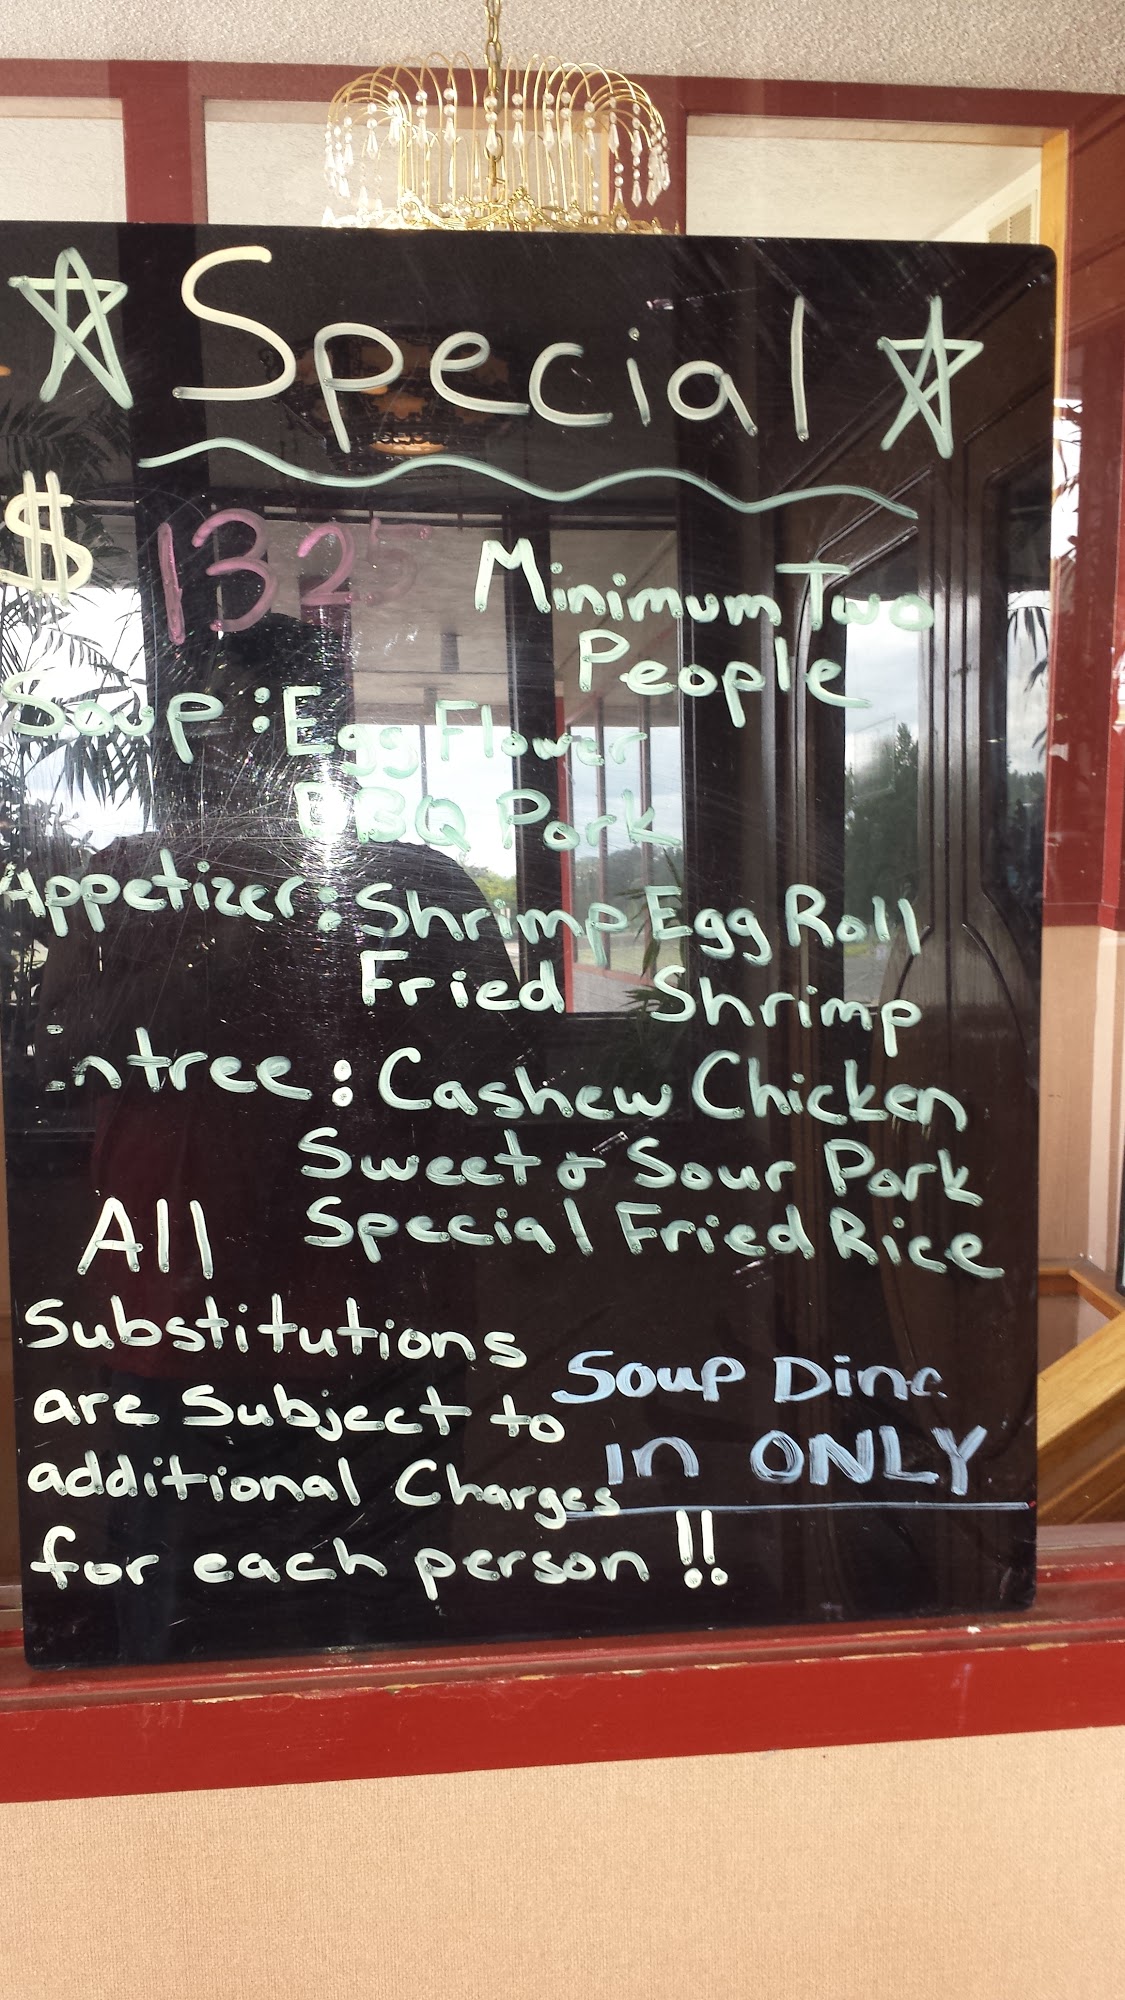 Special
$ 13 25 Minimum Two
People
Soup: Egg Flower
BBQ Pork
Appetizer: Shrimp Egg Roll
Fried Shrimp
ntree: Cashew Chicken
Sweet & Sour Pork
Special Fried Rice
All
Substitutions
are Subject to
additional Charges
for each person !!
Soup Dine
in ONLY